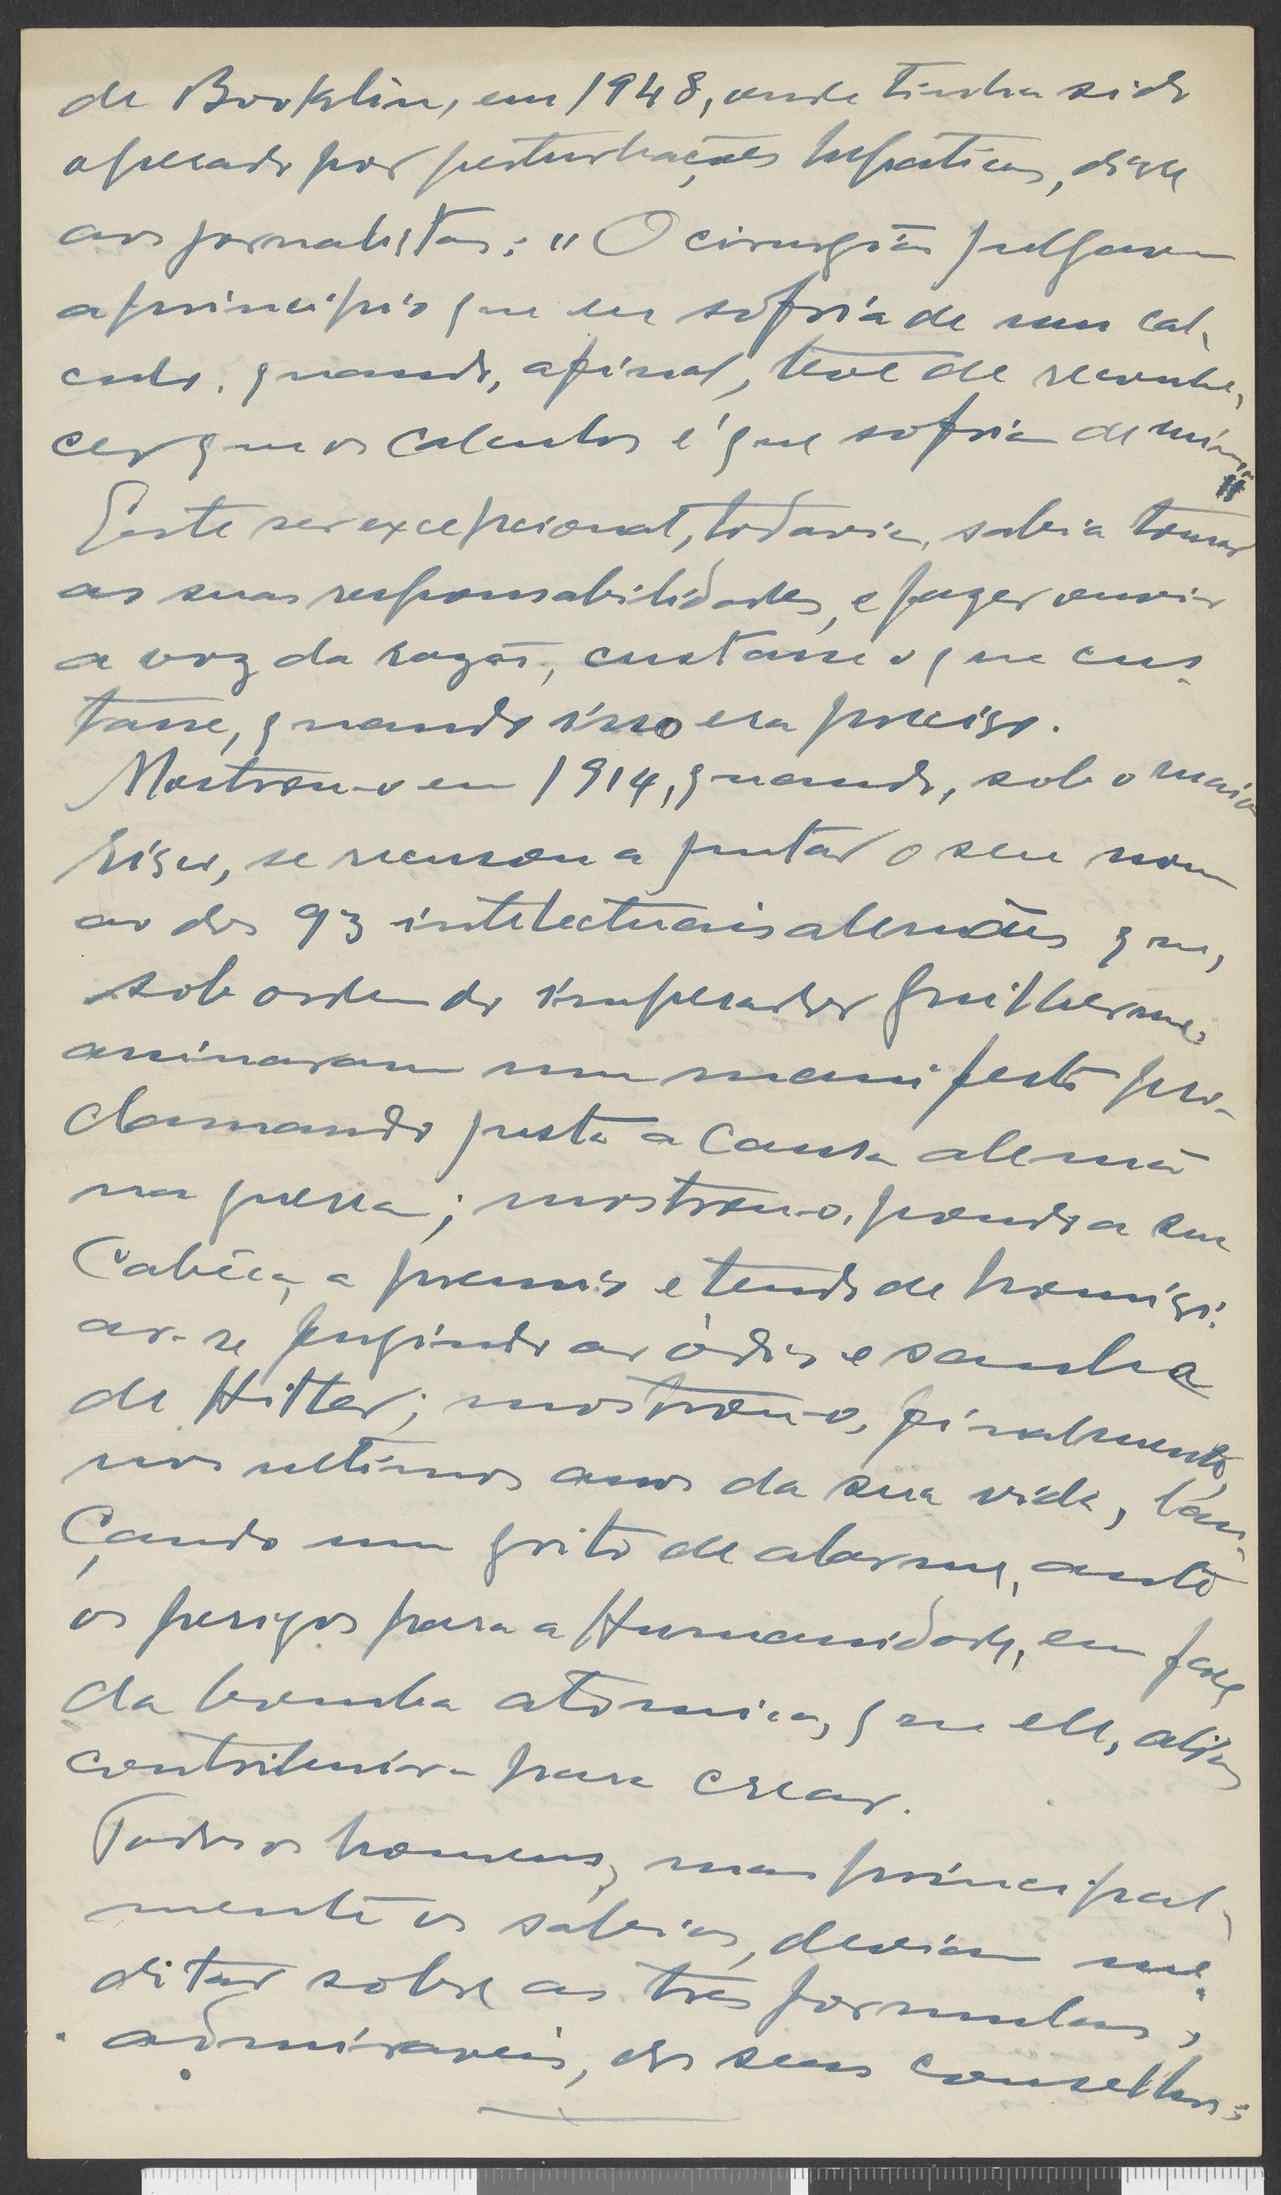 de Brooklin, em 1948, onde tinha sido
operado por perturbações hepaticas, disse
aos jornalistas: "O cirurgião julgava
a principio que eu sofria de um cal-
culo, quando, afinal, teve de reconhe-
cer que os calculos é que sofriam de mim"
Este ser excepcional, todavia, sabia tomar
as suas responsabilidades, e fazer ouvir
a voz da razão, custasse o que cus-
tasse, quando isso era preciso.
Mostrou-o em 1914, quando, sob o maior
sigilo, se recusou a juntar o seu nome
ao dos 93 intelectuais alemães que,
sob ordem do imperador Guilherme,
assinaram um manifesto pro-
clamando justa a causa alemã
na guerra; mostrou-o, pondo a sua
cabeça a premio e tendo de homisi-
ar-se fugindo ao ódio e sanha
de Hitler; mostrou-o, finalmente,
nos ultimos anos da sua vida, lan-
çando um grito de alarme, ante
os perigos para a Humanidade, em face
da bomba atomica, que ele, aliás
contribuira para crear.
Todos os homens, mas principal-
mente os sabios, deviam me-
ditar sobre as três formulas,
admiraveis, dos seus conselhos: